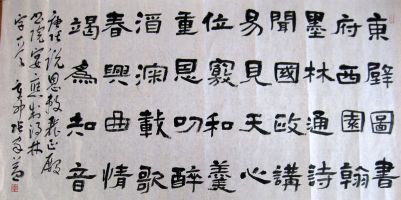 東壁圖書
府西園翰
墨林通詩
聞國政講
易見天心
位竊和羹
重恩叨醉
酒深載歌
春興曲情
竭為知音
唐張說恩敕麗正殿
書院宴應制得林
字